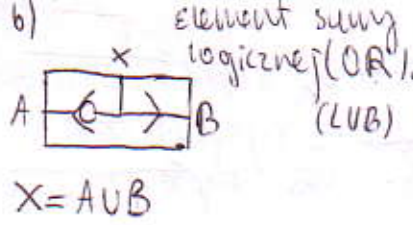 b)
element sumy
logicznej (OR).
(LUB)
X
A
B
X = A∪B